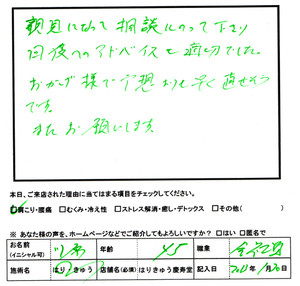 親身になって相談にのって下さり
回復へのアドバイスも適切でした。
おかげ様で予想よりも早く直せそう
です。
またお願いします。
本日、ご来店された理由に当てはまる項目をチェックしてください。
□肩こり・腰痛 □むくみ・冷え性 □ストレス解消・癒し・デトックス □その他( )
※ あなた様の声を、ホームページなどでご紹介してもよろしいですか? □はい □匿名で
お名前 (イニシャル可) 年齢 45 職業 会社員
施術名 はり きゅう 店舗名(必須) はりきゅう慶寿堂 記入日